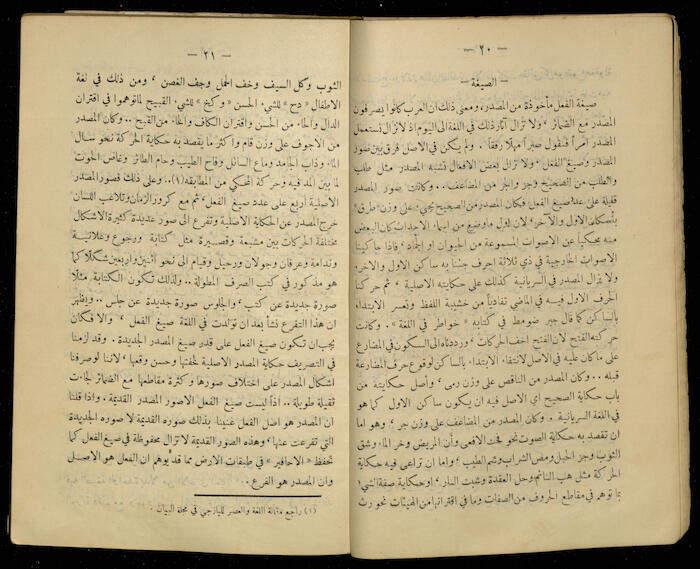 — ٢٠ —
— الصيغة —
صيغة الفعل مأخوذة من المصدر، ومعنى ذلك ان العرب كانوا يصرفون
المصدر مع الضمائر ، ولا تزال آثار ذلك في اللغة الى اليوم اذ لا نزال نستعمل
المصدر امراً فنقول صبراً مهلاً رفقاً . ولم يكن في الاصل فرق بين صور
المصدر وصيغ الفعل ، ولا تزال بعض الافعال تشبه المصدر مثل طلب
والطلب من الصحيح وجر والجر من المضاعف .. وكانت صور المصدر
قليلة على عدد صيغ الفعل فكان المصدر من الصحيح يجيء على وزن «طرق»
باسكان الاول والآخر ، لان اول ما وضع من اسماء الاحداث كان البعض
منه محكياً عن الاصوات المسموعة من الحيوان او الجماد ، فاذا حاكينا
الاصوات الخارجية في ذي ثلاثة احرف جئنا به ساكن الاول والآخر .
ولا يزال المصدر في السريانية كذلك على حكايته الاصلية ، ثم حركنا
الحرف الاول فيه في الماضي تفادياً من خشبة اللفظ وتعسر الابتداء
بالساكن كما قال جبر ضومط في كتابه « خواطر في اللغة » . وكانت
حركته الفتح لان الفتح اخف الحركات ، ورددناه الى السكون في المضارع
على ما كان عليه في الاصل لانتفاء الابتداء بالساكن لوقوع حرف المضارعة
قبله .. وكان المصدر من الناقص على وزن رمى ، واصل حكايته من
باب حكاية الصحيح اي الاصل فيه ان يكون ساكن الاول كما هو
في اللغة السريانية . وكان المصدر من المضاعف على وزن جر ، وهو اما
ان تقصد به حكاية الصوت نحو فحت الافعى وأن المريض وخر الماء وشق
الثوب وجز الحبل ومص الشراب وشم الطيب ، واما ان تراعى فيه حكاية
الحركة مثل هب النائم وحل العقدة وشبت النار ، او حكاية صفة الشيء
بما نوهم في مقاطع الحروف من الصفات وما في اقتراناتها من الهيئات نحو رث
— ٢١ —
الثوب وكل السيف وخف الحمل وجف الغصن ، ومن ذلك في لغة
الاطفال « دح » للشيء الحسن « وكخ » للشيء القبيح لما توهموا في اقتران
الدال والحاء من الحسن واقتران الكاف والخاء من القبح .. وكان المصدر
من الاجوف على وزن قام واكثر ما يقصد به حكاية الحركة نحو سال
الماء وذاب الجامد وماع السائل وفاح الطيب وحام الطائر وغاص الحوت
لما بين المد فيه وحركة المحكي من المطابقة (١) .. وعلى ذلك فصور المصدر
الاصلية اربع على عدد صيغ الفعل ، ثم مع كرور الازمان وتلاعب اللسان
خرج المصدر عن الحكاية الاصلية وتفرع الى صور عديدة كثيرة الاشكال
مختلفة الحركات بين مشبعة وقصيرة مثل كتابة ورجوع وعلانية
وندامة وعرفان وجولان ورحيل وقيام الى نحو اثنين واربعين شكلاً كما
هو مذكور في كتب الصرف المطولة .. ولذلك تكون الكتابة مثلاً
صورة جديدة عن كتب ، والجلوس صورة جديدة عن جلس .. ويظهر
ان هذا التفرع نشأ بعد ان تولدت في اللغة صيغ الفعل ، والا فكان
يجب ان تكون صيغ الفعل على قدر صيغ المصدر الجديدة . وقد لزمنا
في التصريف حكاية المصدر الاصلية لخفتها وحسن وقعها ، لاننا لو صرفنا
اشكال المصدر على اختلاف صورها وكثرة مقاطعها مع الضمائر لجاءت
ثقيلة طويلة .. اذاً ليست صيغ الفعل الا صور المصدر القديمة . واذا قلنا
ان المصدر هو اصل الفعل عنينا بذلك صوره القديمة لا صوره الجديدة
التي تفرعت عنها ، وهذه الصور القديمة لا تزال محفوظة في صيغ الفعل كما
تحفظ « الاحافير » في طبقات الارض مما قد يوهم ان الفعل هو الاصل
وان المصدر هو الفرع .
(١) راجع مقالة اللغة والعصر لليازجي في مجلة البيان .